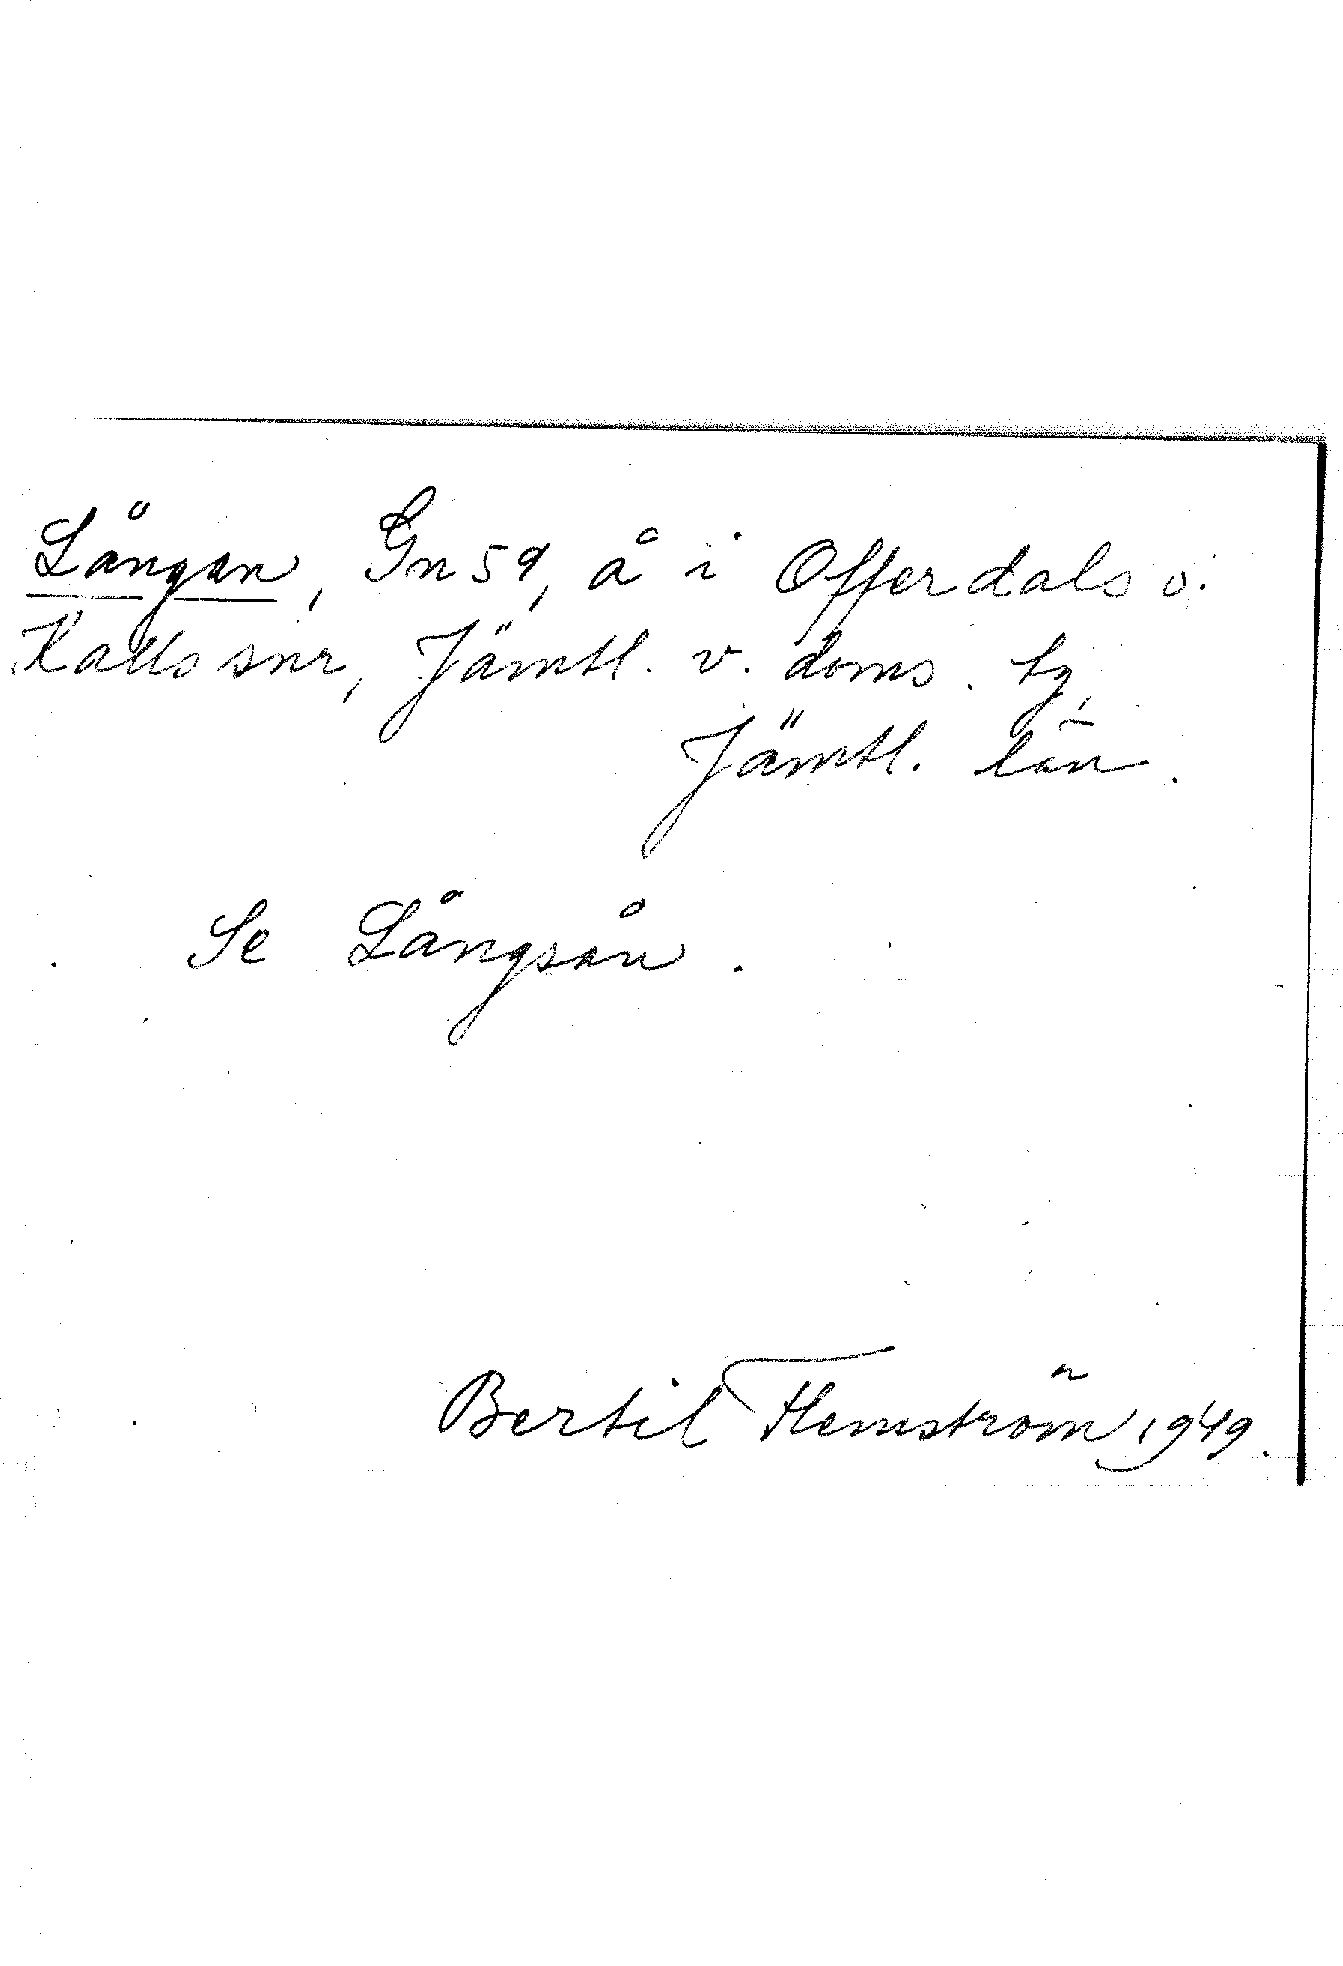 Långan, Gn 59, å i Offerdals o.
Kalls snr, Jämtl. v. doms. tg,
Jämtl. län.
Se Långsån.
Bertil Flemström 1949.